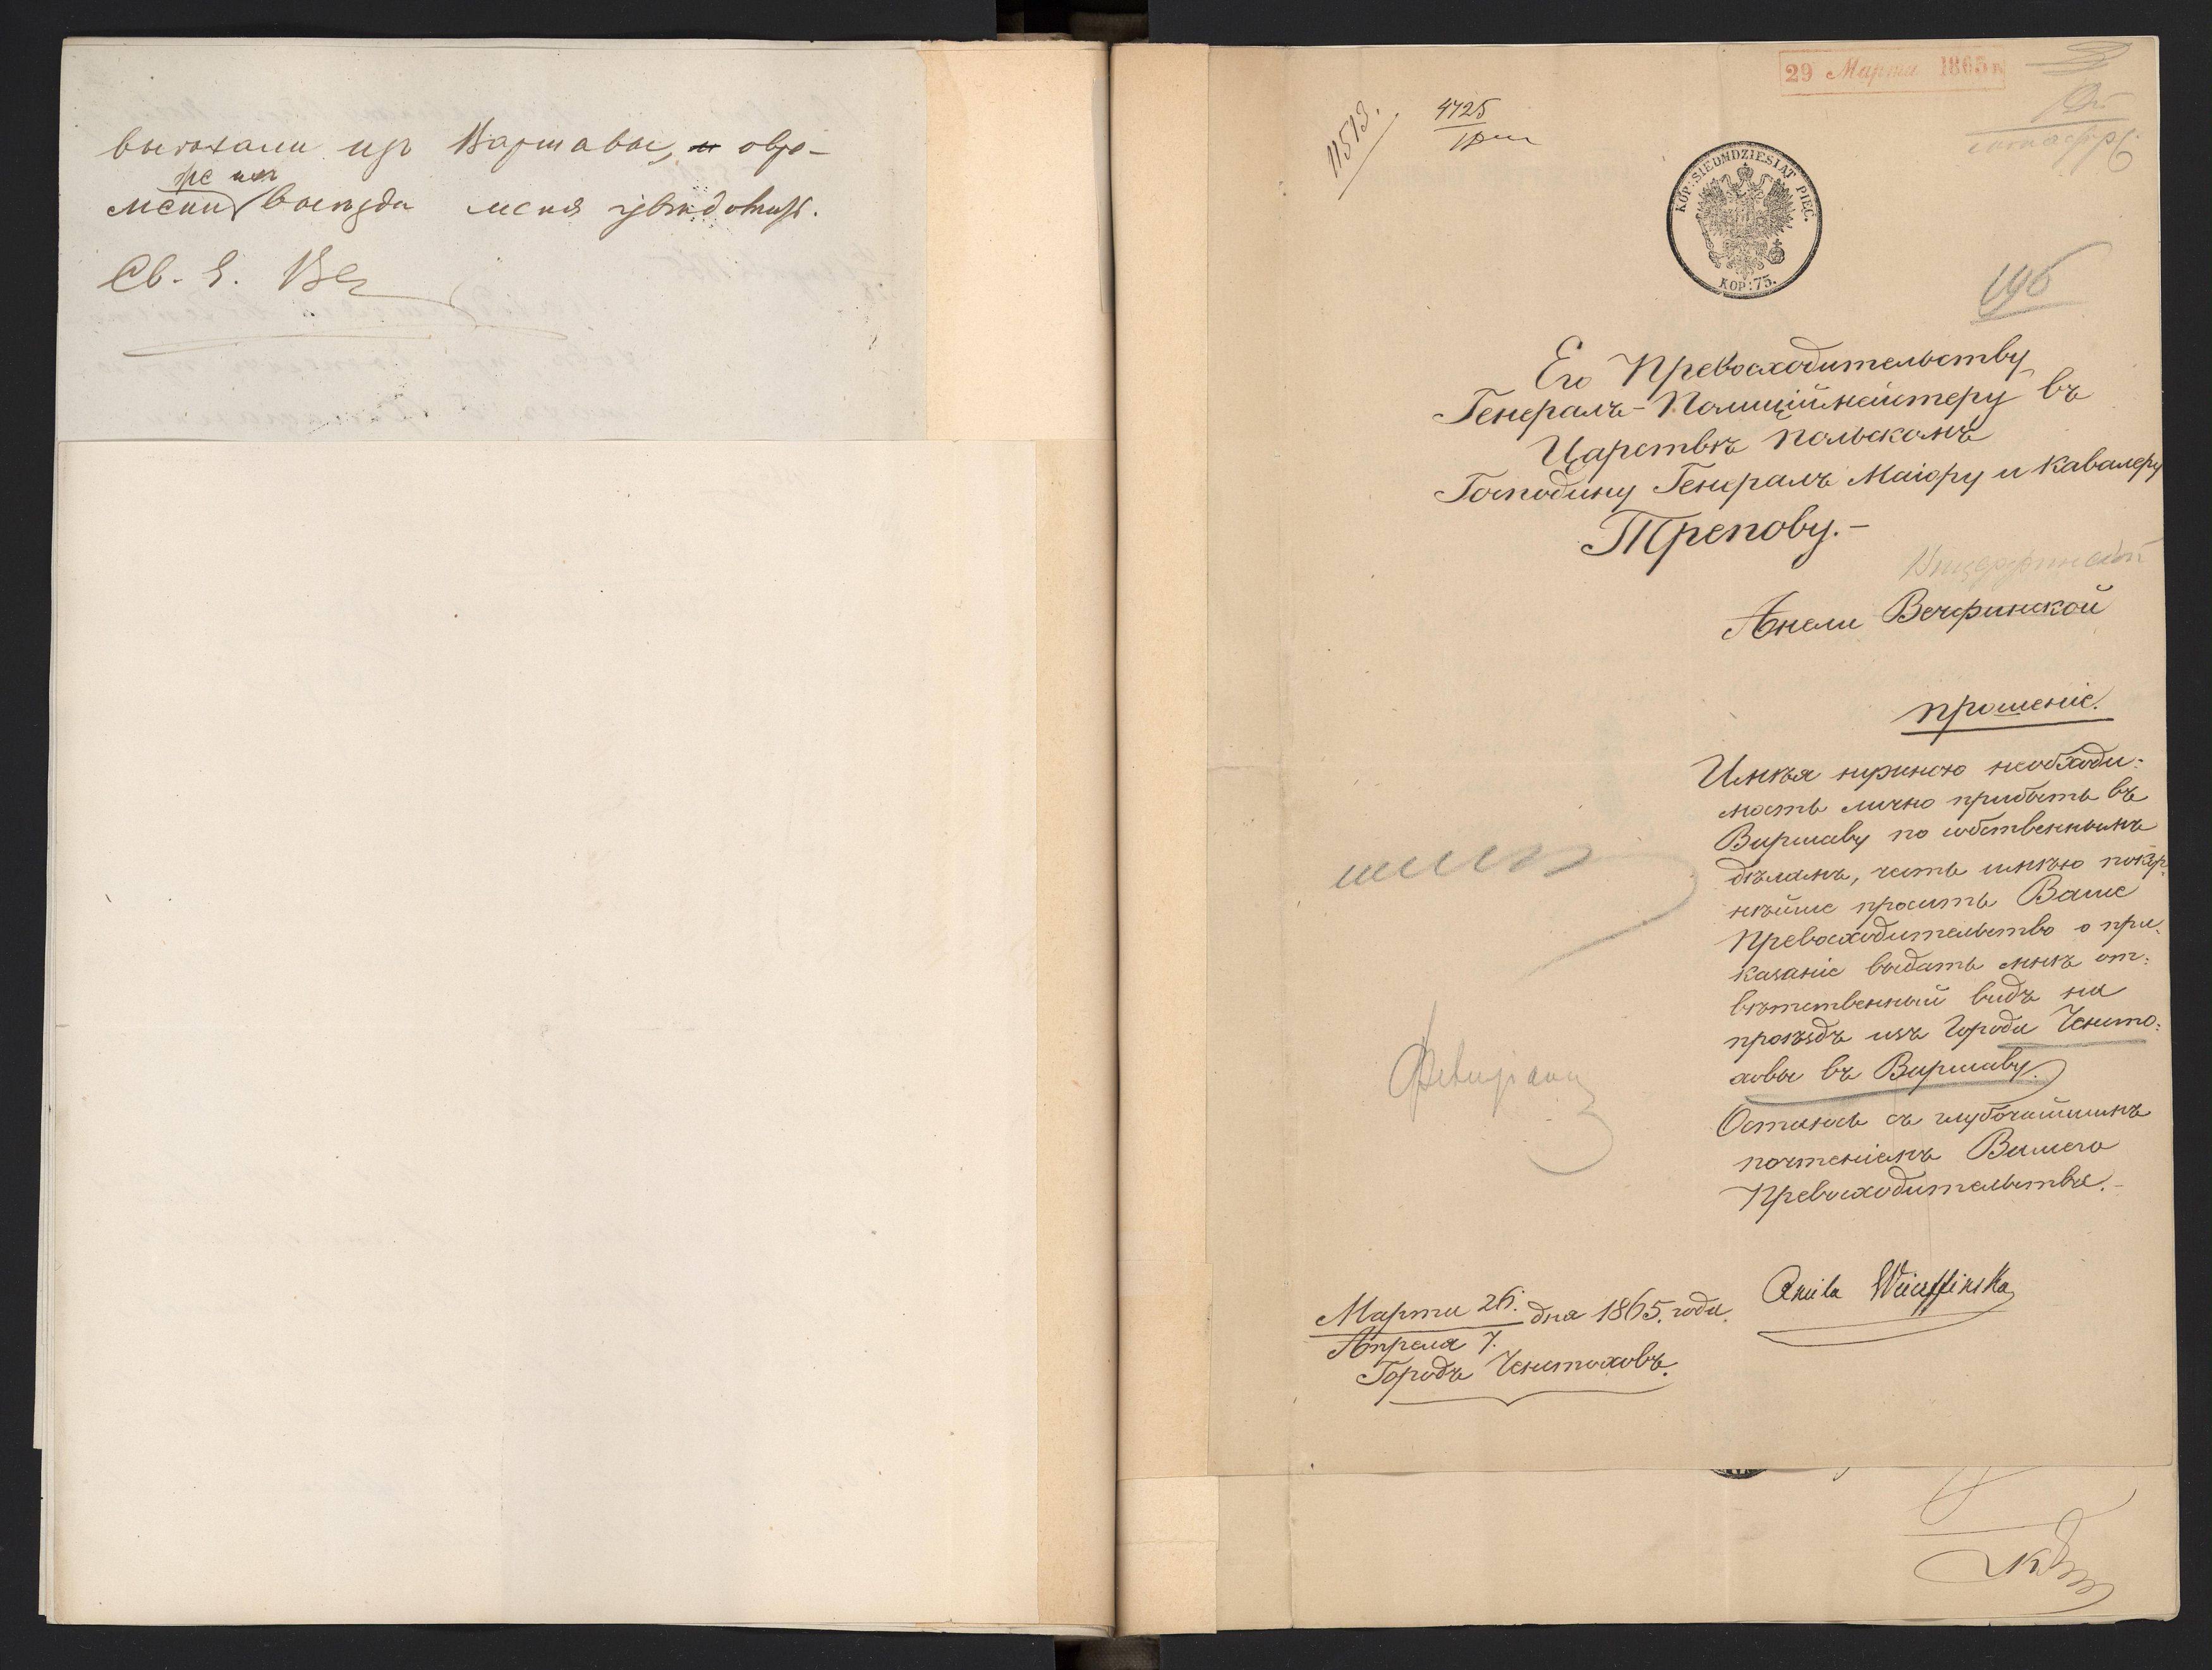 выѣхали изъ Варшавы, о вре-
же ихъ
мени выѣзда меня увѣдомить.
29 Марта 1865
11513.
4725
KOP: SIEDMDZIESIĄT PIĘC.
КОР: 75.
196
Его Превосходительству
Генералъ-Полицiймейстеру въ
Царствѣ Польскомъ
Господину Генералъ Маiору и Кавалеру
Трепову.-
Анели Вечфинской
прошенiе.
Имѣя нужную необходи:
мость лично прибыть въ
Варшаву по собственнымъ
дѣламъ, честь имѣю покор:
нѣйше просить Ваше
Превосходительство о при:
казанiе выдать мнѣ от:
вѣтственный видъ на
проѣздъ изъ Города Ченсто:
ховы въ Варшаву.
Остаюсь съ глубочайшимъ
почтенiемъ Вашего
Превосходительства.-
Aniela Wieczffińska
Марта 26. дня 1865. года.
Апреля 7.
Городъ Ченстоховъ.